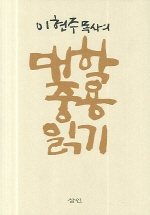 이현주 목사의
대학
중용
읽기
삼인